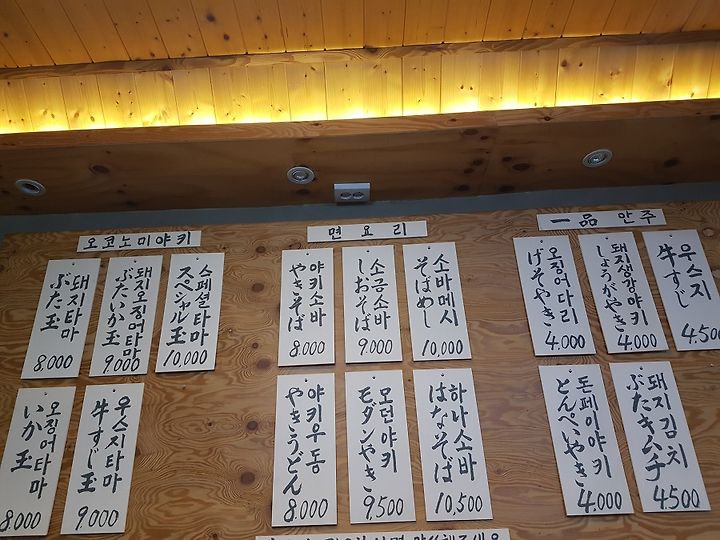 오코노미야키
돼지타마
ぶた玉
8.000
돼지오징어타마
ぶたいか玉
9.000
스페셜타마
スペシャル玉
10,000
오징어타마
いか玉
8.000
우스지타마
牛すじ玉
9.000
면요리
야키소바
やきそば
8.000
소금소바
しおそば
9.000
소바메시
そばめし
10,000
야키우동
やきうどん
8.000
모던야키
モダンやき
9,500
하나소바
はなそば
10,500
一品 안주
오징어다리
げそやき
4.000
돼지생강야키
しょうがやき
4.000
우스지
牛すじ
4.500
돈페이야키
とんぺいやき
4.000
돼지김치
ぶたキムチ
4.500